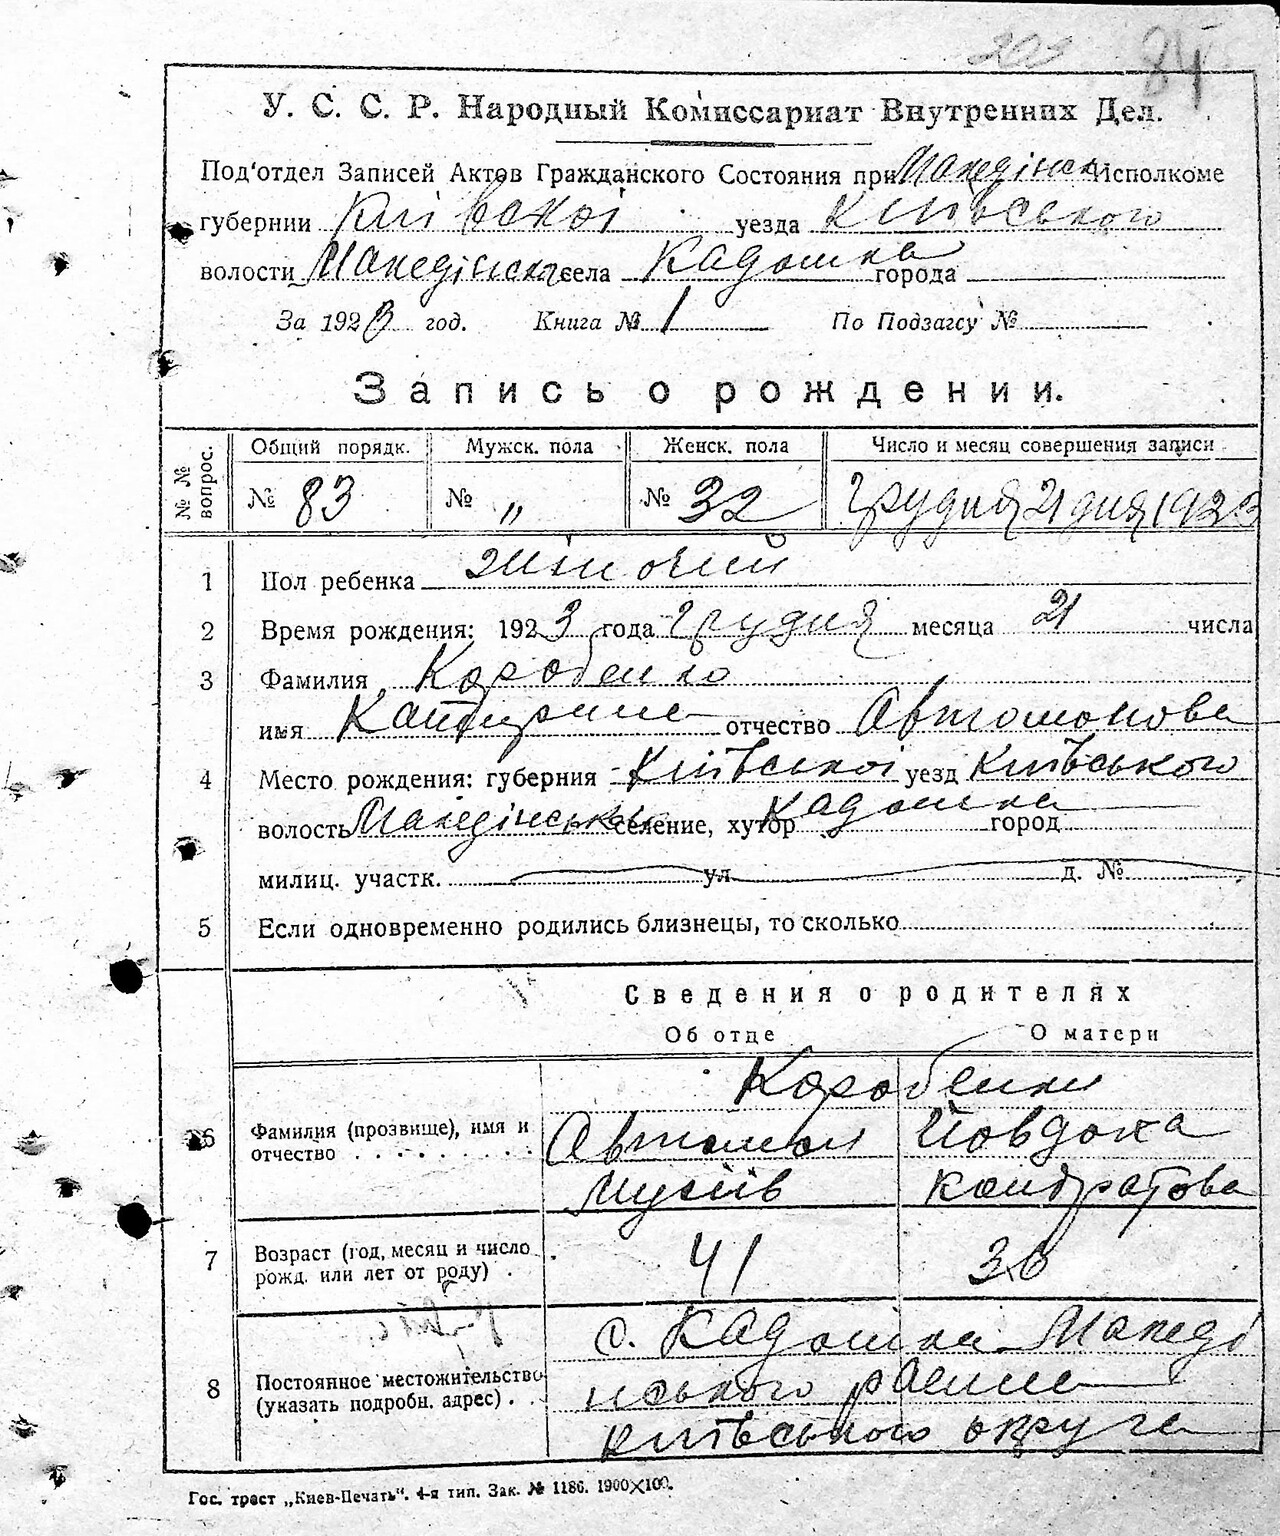 84
У. С. С. Р. Народный Комиссариат Внутренних Дел.
Под'отдел Записей Актов Гражданского Состояния при Македінськ Исполкоме
губернии Київскоі уезда Київського
волости Македінсько села Кадомка города
За 1923 год. Книга № 1 По Подзагсу №
Запись о рождении.
№ № вопрос. Общий порядк. Мужск. пола Женск. пола Число и месяц совершения записи
№ 83 № „ № 32 Грудня 21 дня 1923
1 Пол ребенка жіночий
2 Время рождения: 1923 года Грудня месяца 21 числа
3 Фамилия Коробенко
имя Катерина отчество Автомонова
4 Место рождения: губерния Київськоі уезд Київського
волость Македінсько селение, хутор Кадомка город
милиц. участк. ул д. №
5 Если одновременно родились близнецы, то сколько
Сведения о родителях
Об отце О матери
Коробенки
6 Фамилия (прозвище), имя и отчество Автомон Йовдоха
Мусіїв Кондратова
7 Возраст (год, месяц и число рожд. или лет от роду) 41 36
с. Кадомка Македі
8 Постоянное местожительство (указать подробн. адрес) нського раена
Київського округа
Гос. трест „Киев-Печать“. 4-я тип. Зак. № 1186. 1900×100.